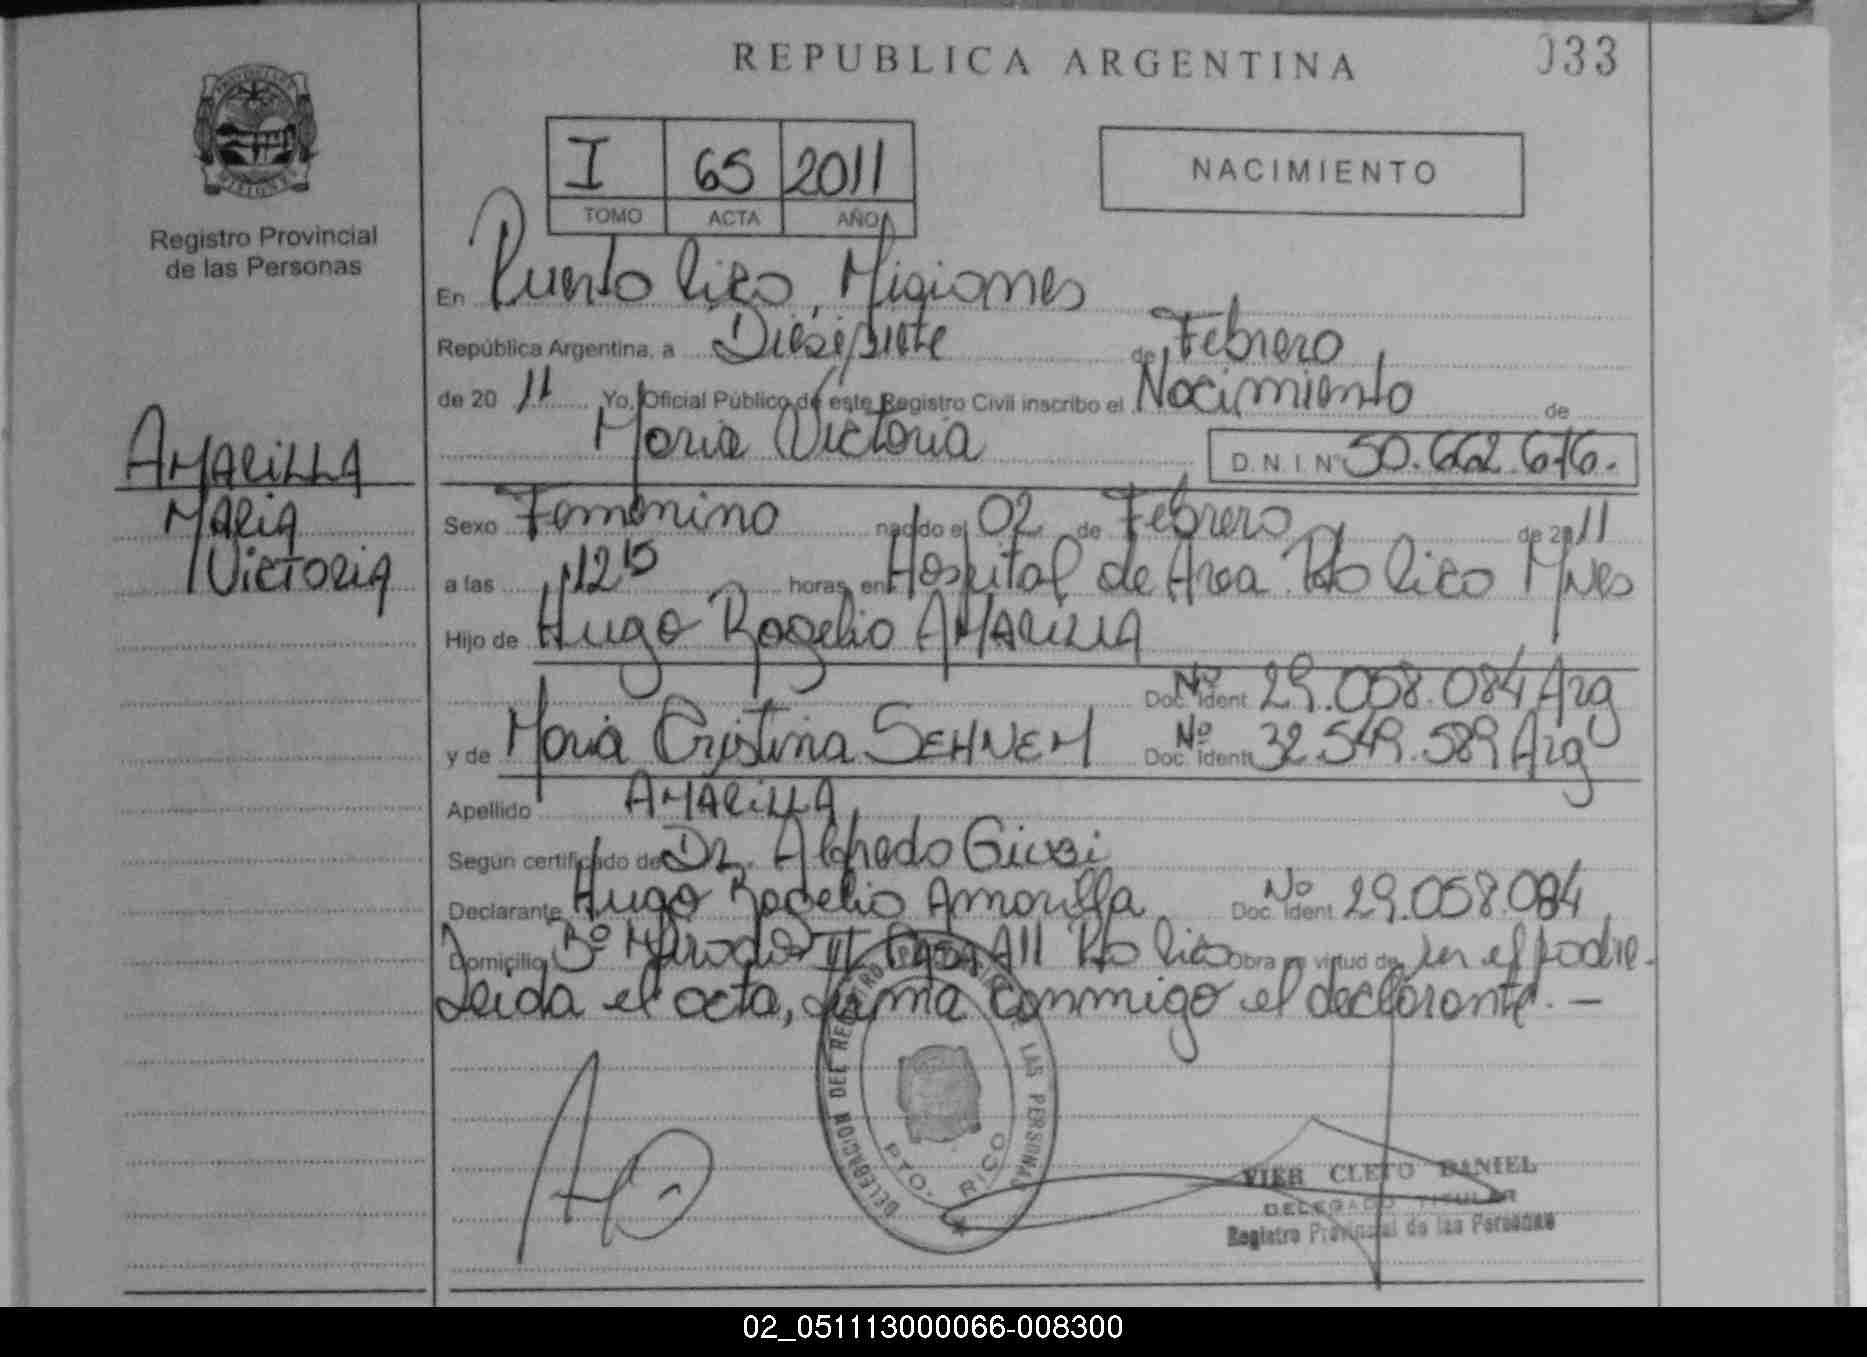 REPUBLICA ARGENTINA
033
I 65 2011
TOMO ACTA AÑO
NACIMIENTO
Registro Provincial
de las Personas
AMARILLA
MARIA
VICTORIA
En Puerto Rico, Misiones
República Argentina, a Diesisiete de Febrero
de 2011 Yo, Oficial Público de este Registro Civil inscribo el Nacimiento de
Maria Victoria D.N.I. Nº 50.662.676.
Sexo Femenino nacido el 02 de Febrero de 2011
a las 12 15 horas en Hospital de Area Pto Rico Mnes
Hijo de Hugo Rogelio AMARILLA
Doc. Ident Nº 29.058.084 Arg
y de Maria Cristina SEHNEM Doc. Ident Nº 32.549.589 Arg
Apellido AMARILLA
Según certificado de Dr. Alfredo
Declarante Hugo Rogelio Amarilla Doc. Ident Nº 29.058.084
Domicilio Bº II Casa A11 Pto Rico Obra en virtud de ser el padre.
Leida el acta, firma conmigo el declarante. —
DELEGACION DEL REGISTRO LAS PERSONAS
PTO. RICO
VIER CLETO DANIEL
DELEGADO TITULAR
Registro Provincial de las Personas
02_051113000066-008300